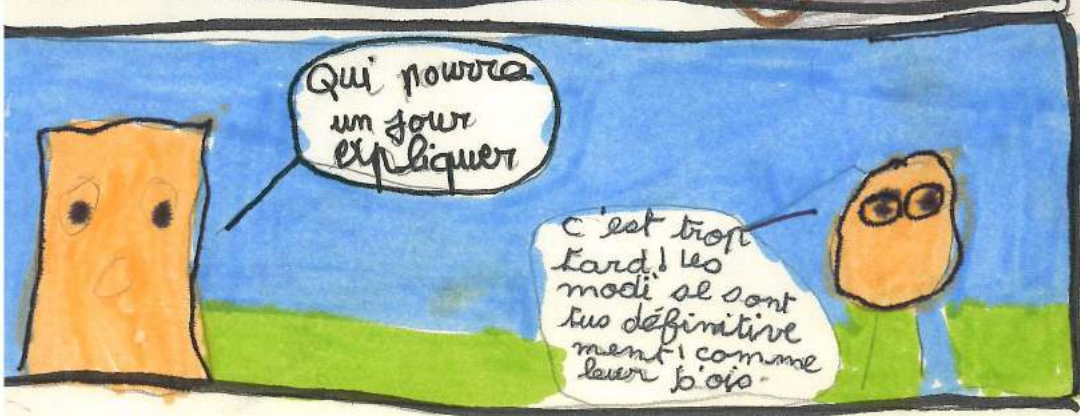 Qui pourra
un jour
expliquer
c'est trop
tard! les
modi se sont
tus définitive
ment! comme
leur bois.